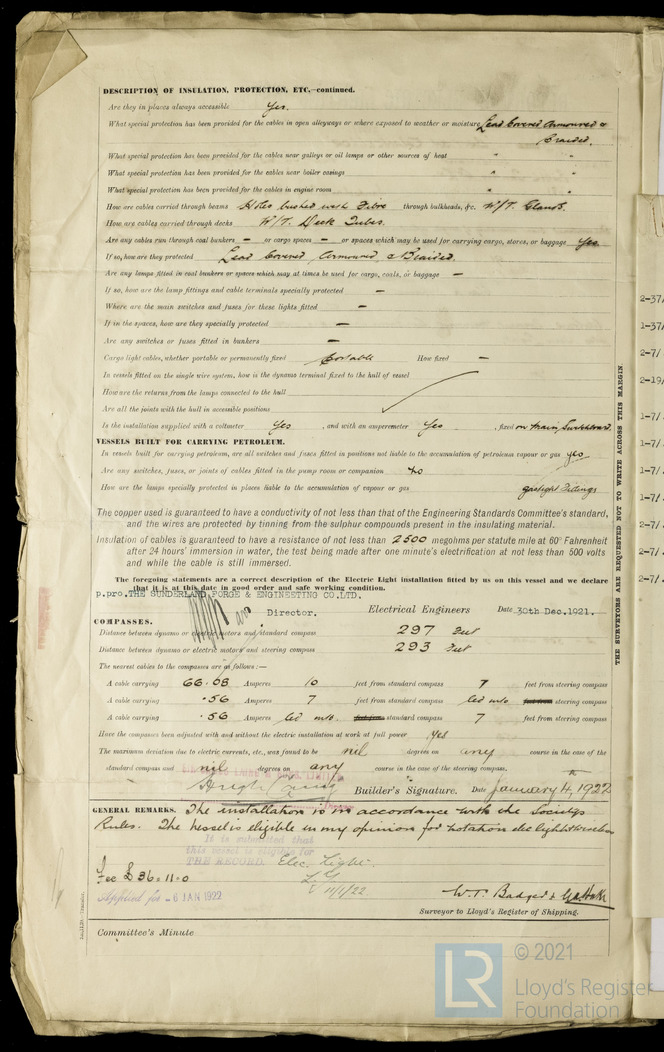 DESCRIPTION OF INSULATION, PROTECTION, ETC.—continued.
Are they in places always accessible Yes.
What special protection has been provided for the cables in open alleyways or where exposed to weather or moisture Lead Covered Armoured &
Braided.
What special protection has been provided for the cables near galleys or oil lamps or other sources of heat " "
What special protection has been provided for the cables near boiler casings " "
What special protection has been provided for the cables in engine room " "
How are cables carried through beams Holes bushed with Fibre through bulkheads, &c. W/T. Glands.
How are cables carried through decks W/T. Deck Tubes.
Are any cables run through coal bunkers — or cargo spaces — or spaces which may be used for carrying cargo, stores, or baggage Yes
If so, how are they protected Lead Covered Armoured & Braided.
Are any lamps fitted in coal bunkers or spaces which may at times be used for cargo, coals, or baggage —
If so, how are the lamp fittings and cable terminals specially protected —
Where are the main switches and fuses for these lights fitted —
If in the spaces, how are they specially protected —
Are any switches or fuses fitted in bunkers —
Cargo light cables, whether portable or permanently fixed Portable How fixed —
In vessels fitted on the single wire system, how is the dynamo terminal fixed to the hull of vessel
How are the returns from the lamps connected to the hull
Are all the joints with the hull in accessible positions
Is the installation supplied with a voltmeter Yes , and with an amperemeter Yes , fixed on Main Switchboard.
VESSELS BUILT FOR CARRYING PETROLEUM.
In vessels built for carrying petroleum, are all switches and fuses fitted in positions not liable to the accumulation of petroleum vapour or gas yes
Are any switches, fuses, or joints of cables fitted in the pump room or companion no
How are the lamps specially protected in places liable to the accumulation of vapour or gas gastight Fittings
The copper used is guaranteed to have a conductivity of not less than that of the Engineering Standards Committee's standard,
and the wires are protected by tinning from the sulphur compounds present in the insulating material.
Insulation of cables is guaranteed to have a resistance of not less than 2500 megohms per statute mile at 60° Fahrenheit
after 24 hours' immersion in water, the test being made after one minute's electrification at not less than 500 volts
and while the cable is still immersed.
The foregoing statements are a correct description of the Electric Light installation fitted by us on this vessel and we declare
that it is at this date in good order and safe working condition.
p.pro.THE SUNDERLAND FORGE & ENGINEETING CO.LTD.
Director. Electrical Engineers Date 30th Dec.1921.
COMPASSES.
Distance between dynamo or electric motors and standard compass 297 Feet
Distance between dynamo or electric motors and steering compass 293 Feet
The nearest cables to the compasses are as follows:—
A cable carrying 66.08 Amperes 10 feet from standard compass 7 feet from steering compass
A cable carrying .56 Amperes 7 feet from standard compass led into feet from steering compass
A cable carrying .56 Amperes led into feet from standard compass 7 feet from steering compass
Have the compasses been adjusted with and without the electric installation at work at full power Yes
The maximum deviation due to electric currents, etc., was found to be nil degrees on any course in the case of the
standard compass and nil degrees on any course in the case of the steering compass.
Builder's Signature. Date January 4th, 1922
GENERAL REMARKS. The installation is in accordance with the Societys
Rules. The vessel is eligible in my opinion for notation elec light & wireless
It is submitted that
this vessel is eligible for
THE RECORD. Elec. Light.
11/1/22
Fee £36=11=0
Applied for -6 JAN 1922
W.T. Badger &
Surveyor to Lloyd's Register of Shipping.
Committee's Minute
THE SURVEYORS ARE REQUESTED NOT TO WRITE ACROSS THIS MARGIN.
2-37/
1-37/
2-7/
2-19/
1-7/
1-7/
1-7/
1-7/
2-7/
2-7/
2-7/
LR
© 2021
Lloyd's Register
Foundation